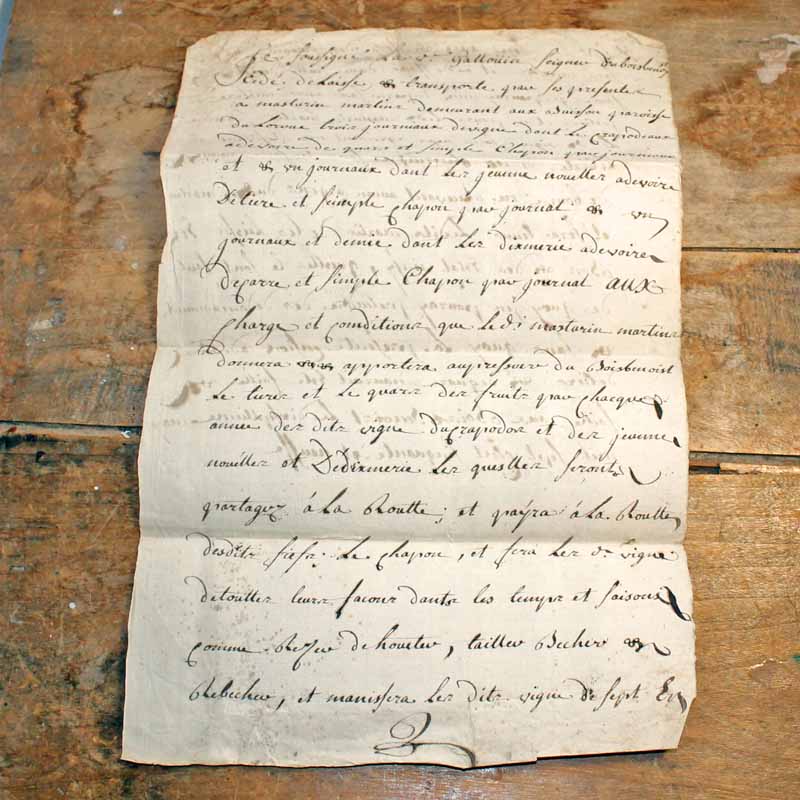 Je soussigné Le Sr gallouin Seigneur duboisbenoist
Cede delaisse & transporte par ses presentes
a masturin martins demeurant aux Buisson paroisse
du Loroux trois journaux devigne dant Le Crapodeaux
adevoire de quars et simple Chapon par journaux
et & un journaux dant Les jeeunne nouelles adevoire
De tiere et simple Chapon par journal & un
journaux et demie dant Les dixmerie adevoire
decarre et simple Chapon par journal aux
Charge et conditions que ledi masturin martins
donnera apportera aupressoir du Boisbenoist
Le tiers et Le quars des fruits par chacque
annee des dits vigne ducrapodos et des jeeunne
nouelles et Dedixmerie Les quelles seronts
partages à La Routte; et payra à La Routte
desdits fiefs Le chapon, et fera Les ds vigne
detouttes leurs facons dants les temps et saisons
comme de houetter, tailler Becher &
Rebecher, et manissera Les dits vigne de sept En